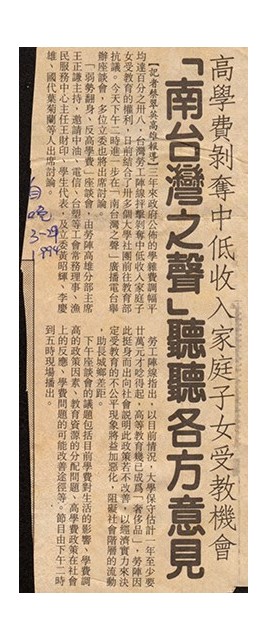 高學費剝奪中低收入家庭子女受教機會
「南台灣之聲」聽聽各方意見
【記者蔡翠英高雄報導】三年來政府公佈的學雜費調幅平
均達百分之卅八，台灣勞工陣線抨擊剝奪中低收入家庭子
女受教育的權利，日前曾結合了卅多個大學社團前往教育部
抗議。今天下午二時進一步在「南台灣之聲」廣播電台舉
辦座談會，多位立委也將出席討論。
「弱勢翻身、反高學費」座談會，由勞陣高雄分部主席
王正謙主持，邀請中油、電信、台塑等工會常務理事、漁
民服務中心主任王財印、學生代表，及立委黃昭輝、李慶
雄、國代葉菊蘭等人出席討論。
勞工陣線指出，以目前情況，大學保守估計一年至少要
廿萬元才唸得起，高等教育幾已成為「奢侈品」，勞陣因
此挺身而出向社會說明此政策若不改善，以經濟實力來決
定受教育的不公平現象將益加惡化，阻礙社會階層的流動
，助長城鄉差距。
下午座談會的議題包括目前學費對生活的影響、學費調
高的政策因素、教育資源的分配問題、高學費政策在社會
上的反應、學費問題的可能改善途徑等。節目由下午二時
到五時現場播出。
自晚
3-29
1994